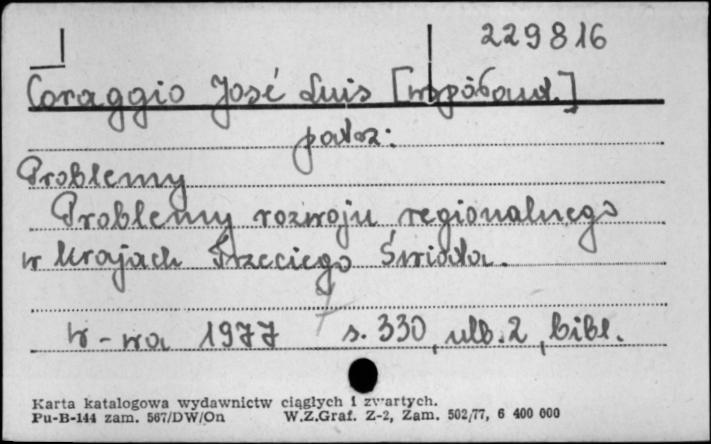 229816
Coraggio José Luis [współaut.]
patrz:
Problemy
Problemy rozwoju regionalnego
w krajach Trzeciego Świata.
W-wa 1977 s. 330, nlb. 2, bibl.
Karta katalogowa wydawnictw ciągłych i zwartych.
Pu-B-144 zam. 567/DW/On W.Z.Graf. Z-2, Zam. 502/77, 6 400 000